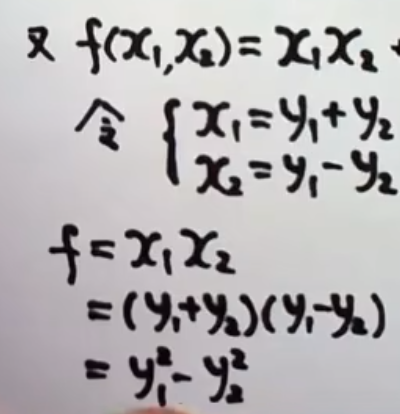 又 f(x₁,x₂)=x₁x₂
令 { x₁=y₁+y₂
x₂=y₁-y₂
f=x₁x₂
=(y₁+y₂)(y₁-y₂)
=y₁²-y₂²